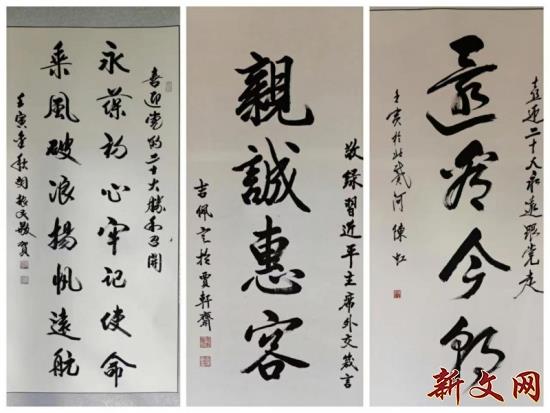 喜迎党的二十大勝利召開
永葆初心牢記使命
乘風破浪揚帆遠航
壬寅金秋 振文敬賀
敬録習近平主席外交箴言
親誠惠容
吉佩定於賈軒齋
喜迎二十大永遠跟党走
還看今朝
壬寅於北戴河 陳虹
新文网